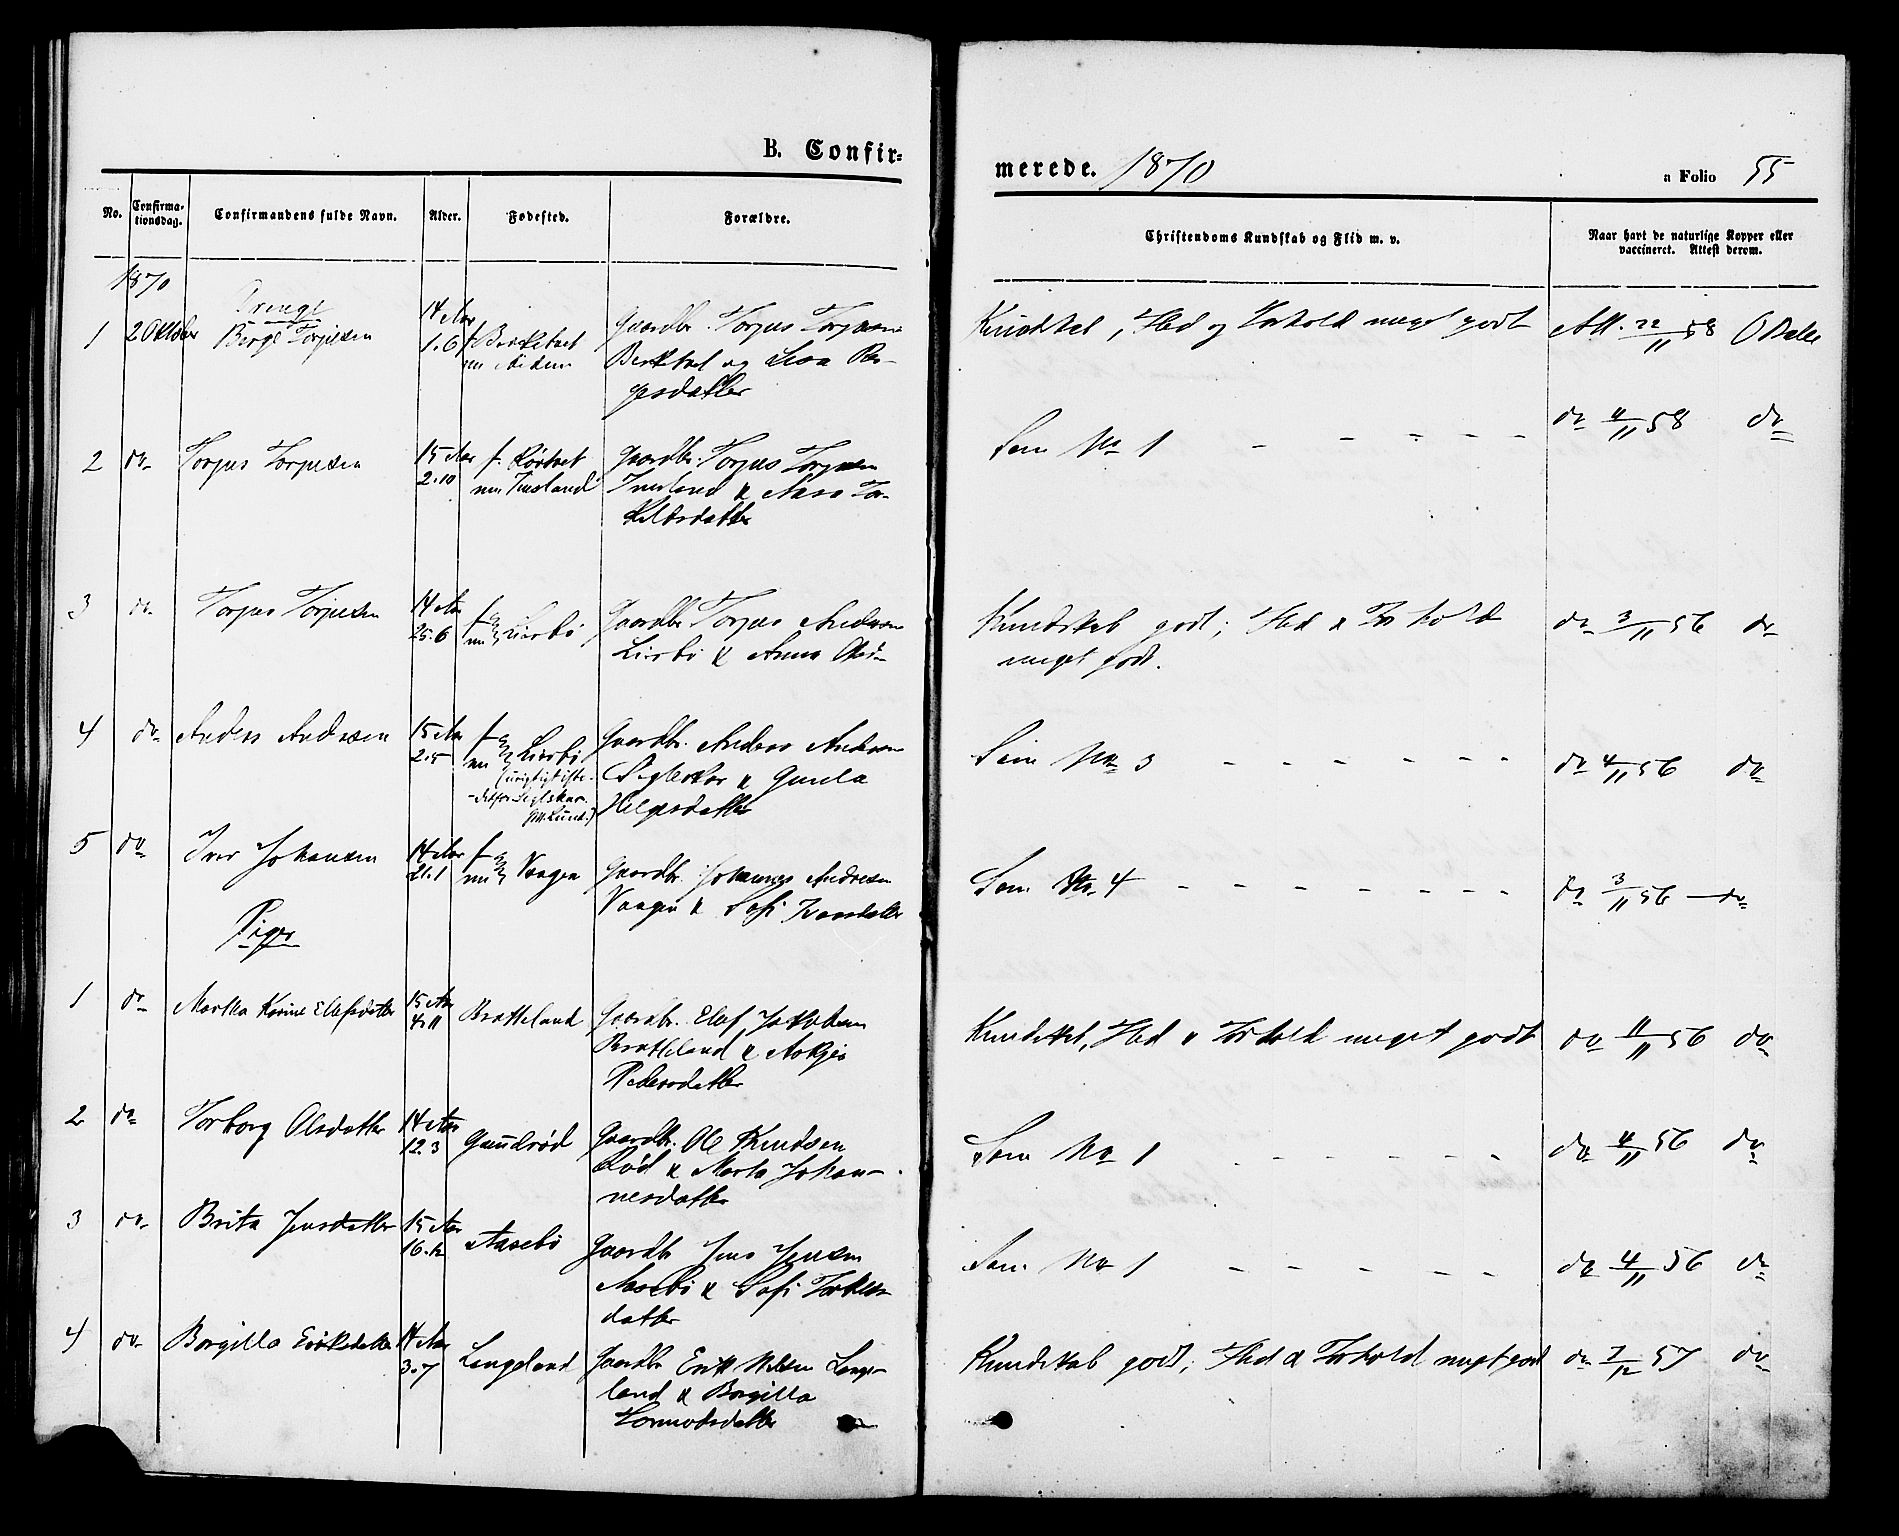 B. Confir-
merede. 1870
a Folio 55
No. Confirma-tionsdag. Confirmandens fulde Navn. Alder. Fødested. Forældre.
Christendoms Kundskab og Flid m. v.
Naar havt de naturlige Kopper eller vaccineret. Attest derom.
1870
Drenge
1 2 Oktober Berge Torjusen 14 Aar 1.6 f. Birketvet
Gaardbr. Torjus Torjusen
og Ber-
gesdatter
Kundskab, Flid og Forhold meget godt Att. 22/11 58
2 do Torjus Torjusen 15 Aar 2.10 f. nu
Gaardbr. Torjus Torjusen
& Aasa Tor-
kildsdatter
Som No 1 - - - - - do 4/11 58 do
3 do Torjus Torjusen 14 Aar 25.6 f. nu Liesbö
Gaardbr Torjus Andersen
Liesbö & Anna
Kundskab godt; Flid & Forhold
meget godt.
do 3/11 56 do
4 do Anders Andersen 15 Aar 2.5 f nu Liesbö
Gaardbr. Anders Andersen
& Gunla
Helgesdatter
Som No 3 - - - - - - do 4/11 56 do
5 do Iver Johansen 14 Aar 21.1 f nu Vaagen
Gaardbr. Johannes Andresen
Vaagen & Sofi Iversdatter
Som No. 4 - - - - - - - - do 3/11 56 - do
Piger
1 do Martha Karine Elefsdatter 15 Aar 4.11 Bratteland
Gaardbr. Elef Jakobsen
Bratteland & Askjer
Pedersdatter
Kundskab, Flid & Forhold meget godt do 11/11 56 do
2 do Torborg Olsdatter 14 Aar 12.3 Gundröd
Gaardbr. Ole Knudsen
Röd & Marta Johan-
nesdatter
Som No 1 - - - - - - do 4/11 56 do
3 do Brita Jensdatter 15 Aar 16.12 Aasebö
Gaardbr Jens Jensen
Aasebö & Sofi
datter
Som No 1 - - - - - - do 4/11 56 do
4 do Borgilla Eriksdatter 14 Aar 3.7 Langeland
Gaardbr Erik Nilsen Lange-
land & Borgilla
Tormodsdatter
Kundskab godt; Flid & Forhold meget godt do 7/12 57 do